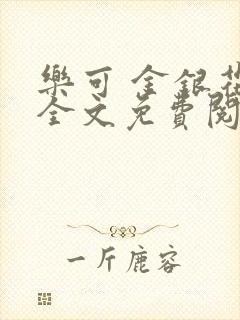 樂可 金銀花
全文免費閱
一斤鹿容